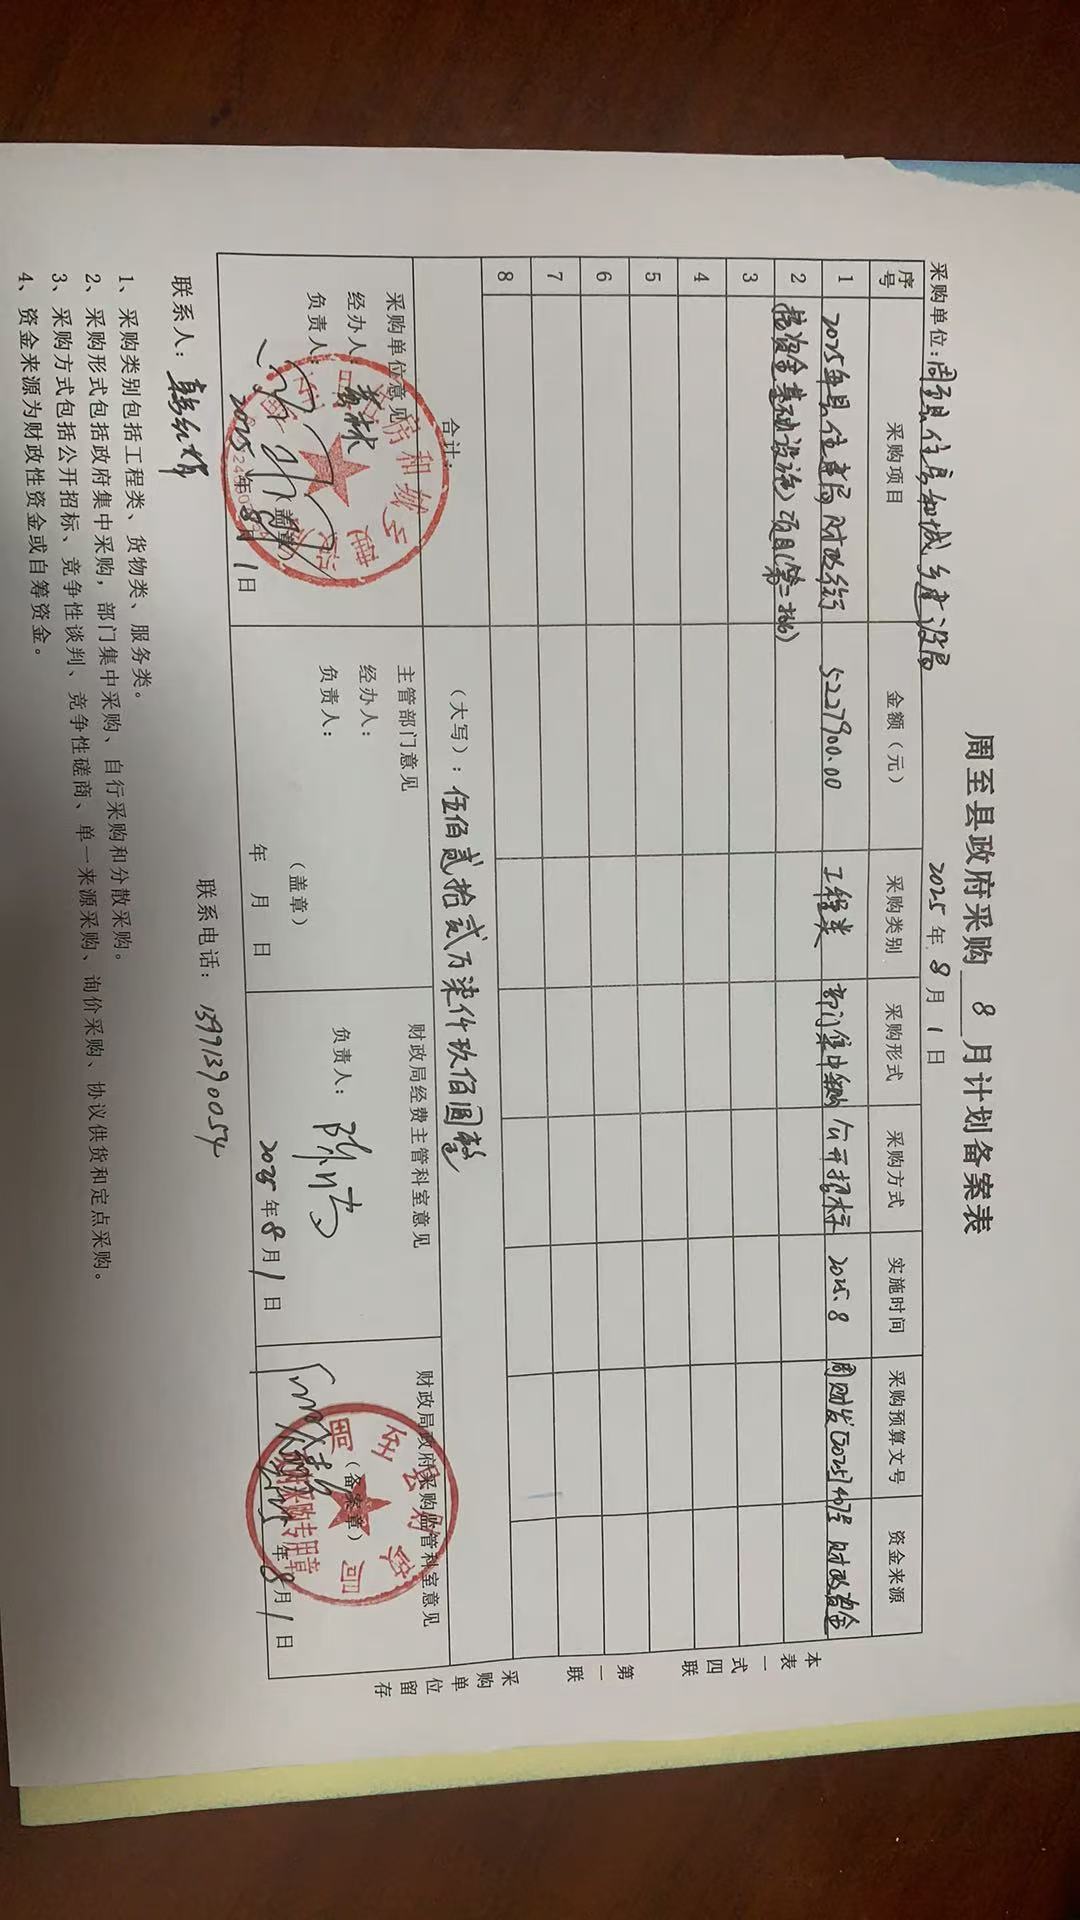 周至县政府采购 8 月计划备案表
2025年 8 月 1 日
采购单位:周至县住房和城乡建设局
序号 采购项目 金额（元） 采购类别 采购形式 采购方式 实施时间 采购预算文号 资金来源
1 2025年县住建局财政衔 5227900.00 工程类 部门集中采购 公开招标 2025.8 周财发[2025]407号 财政资金
2 接资金基础设施项目(第二批)
3
4
5
6
7
8
合计: （大写）: 伍佰贰拾贰万柒仟玖佰圆整
采购单位意见
经办人:
负责人:
（盖章）
2025年8月1日
主管部门意见
经办人:
负责人:
（盖章）
年 月 日
财政局经费主管科室意见
负责人:
2025年8月1日
财政局政府采购监管科室意见
（备案章）
年8月1日
周至县财政局
政府采购专用章
本表一式四联 第一联 采购单位留存
联系人: 联系电话: 13991390054
1、采购类别包括工程类、货物类、服务类。
2、采购形式包括政府集中采购，部门集中采购、自行采购和分散采购。
3、采购方式包括公开招标、竞争性谈判、竞争性磋商、单一来源采购、询价采购、协议供货和定点采购。
4、资金来源为财政性资金或自筹资金。